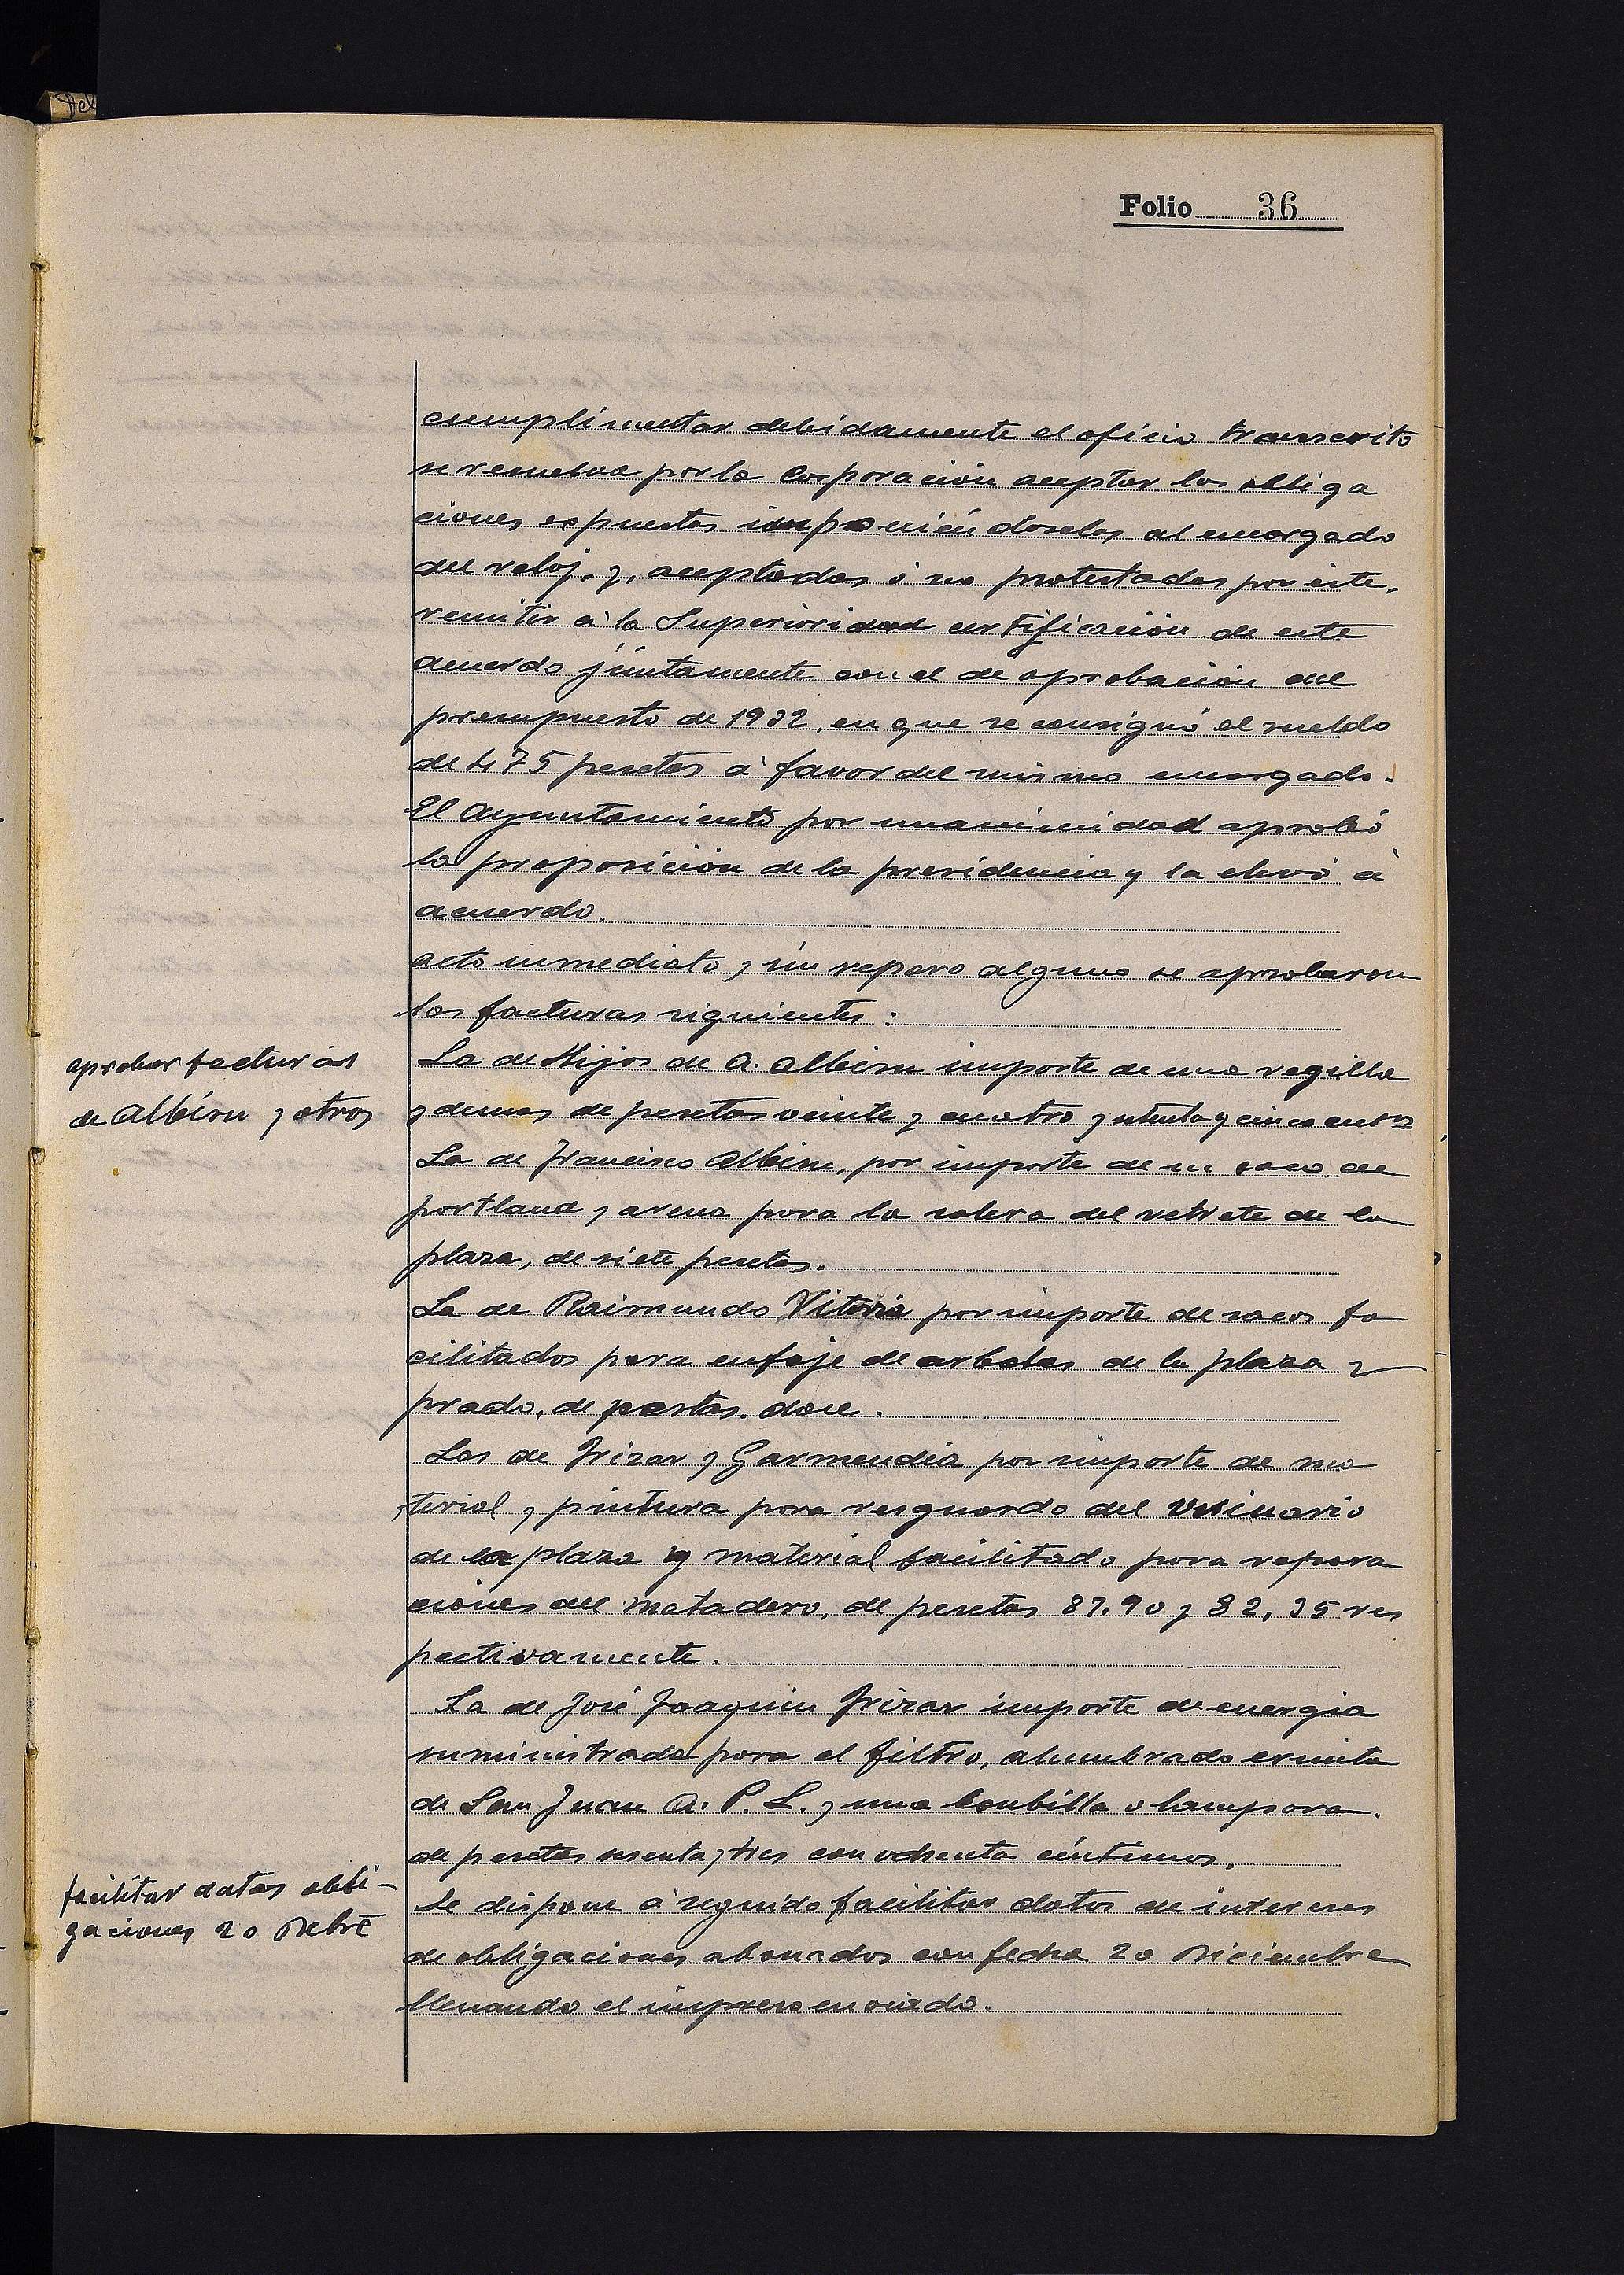 Folio 36
cumplimentar debidamente el oficio transcrito
se resuelva por la Corporación aceptar las obliga
ciones expuestas imponiéndoselas al encargado
del reloj, y, aceptadas ó no protestadas por éste,
remitir á la Superioridad certificación de este
acuerdo juntamente con el de aprobación del
presupuesto de 1932, en que se consignó el sueldo
de 475 pesetas á favor del mismo encargado.
El Ayuntamiento por unanimidad aprobó
la proposición de la presidencia y la elevó á
acuerdo.
acto inmediato y sin reparo alguno se aprobaron
las facturas siguientes:
aprobar facturas
de Albisu y otros
La de Hijos de A. Albisu importe de una regilla
y demas de pesetas veinte y cuatro y setenta y cinco cents
La de Francisco Albisu, por importe de un saco de
portland y arena para la solera del retrete de la
plaza, de siete pesetas.
La de Raimundo Vitoria por importe de sacos fa
cilitados para enfaje de arboles de la plaza y
prado, de pesetas doce.
Las de Irizar y Garmendia por importe de ma
terial y pintura para resguardo del urinario
de la plaza y material facilitado para repara
ciones del matadero, de pesetas 87,90 y 82,35 res
pectivamente.
La de José Joaquin Irizar importe de energia
suministrada para el filtro, alumbrado ermita
de San Juan A. P. L. y una bombilla o lampara.
de pesetas sesenta y tres con ochenta céntimos.
facilitar datos obli-
gaciones 20 Dcbre
Se dispone á seguido facilitar datos de intereses
de obligaciones abonados con fecha 20 Diciembre
llenando el impreso enviado.